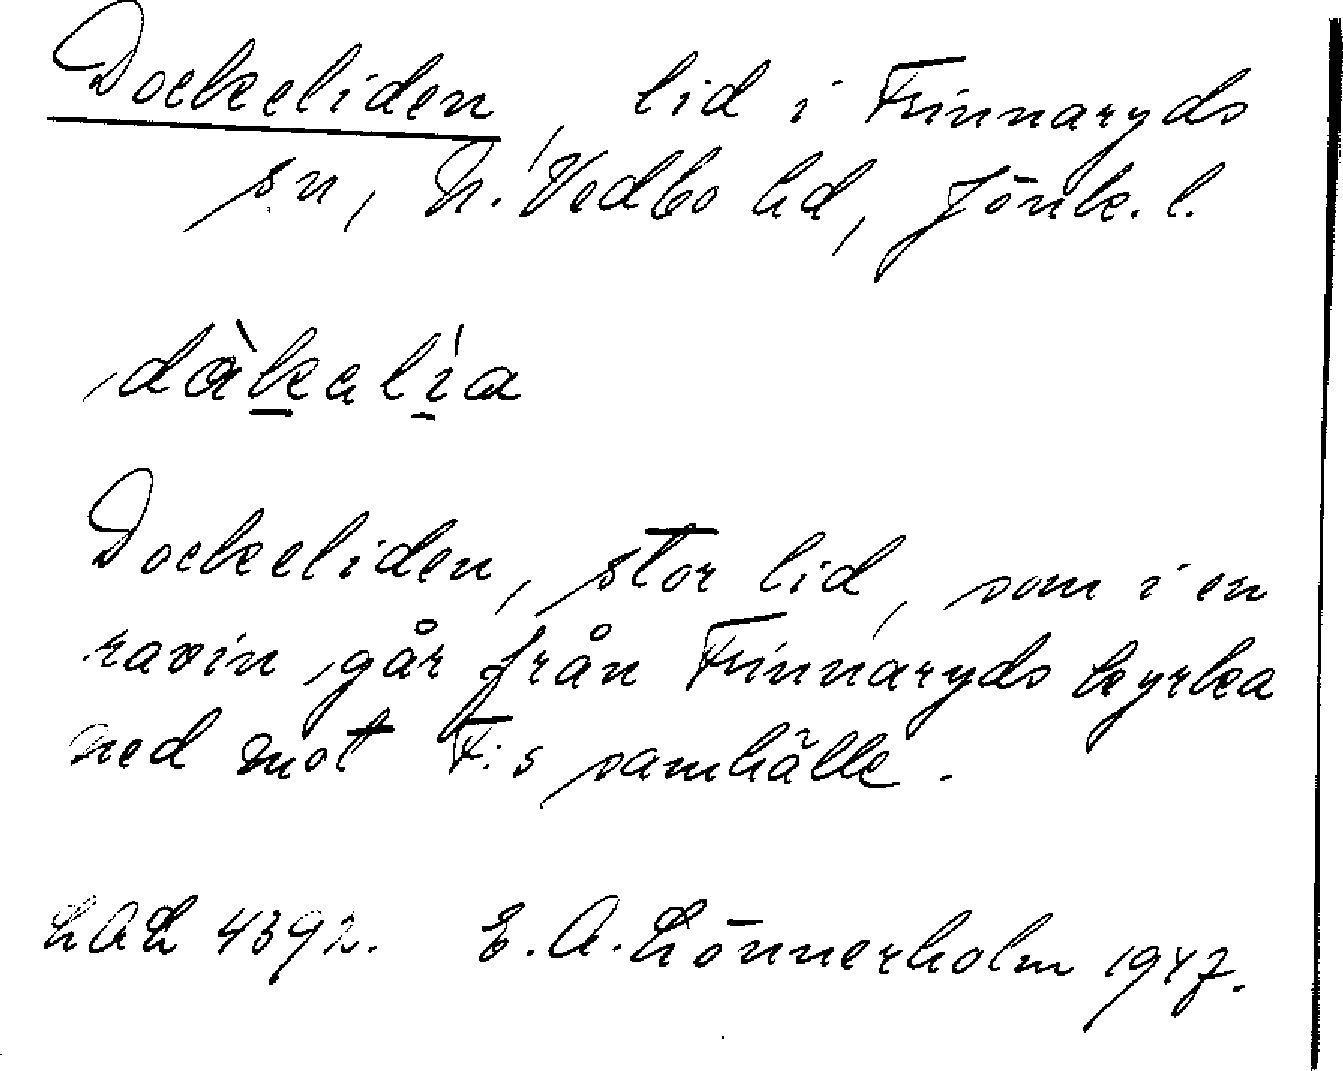 Dockeliden, lid i Frinnaryds
sn, N. Vedbo hd, Jönk. l.
dàkalía
Dockeliden, stor lid, som i en
ravin går från Frinnaryds kyrka
ned mot F:s samhälle.
LAL 4392. E. A. Lönnerholm 1947.